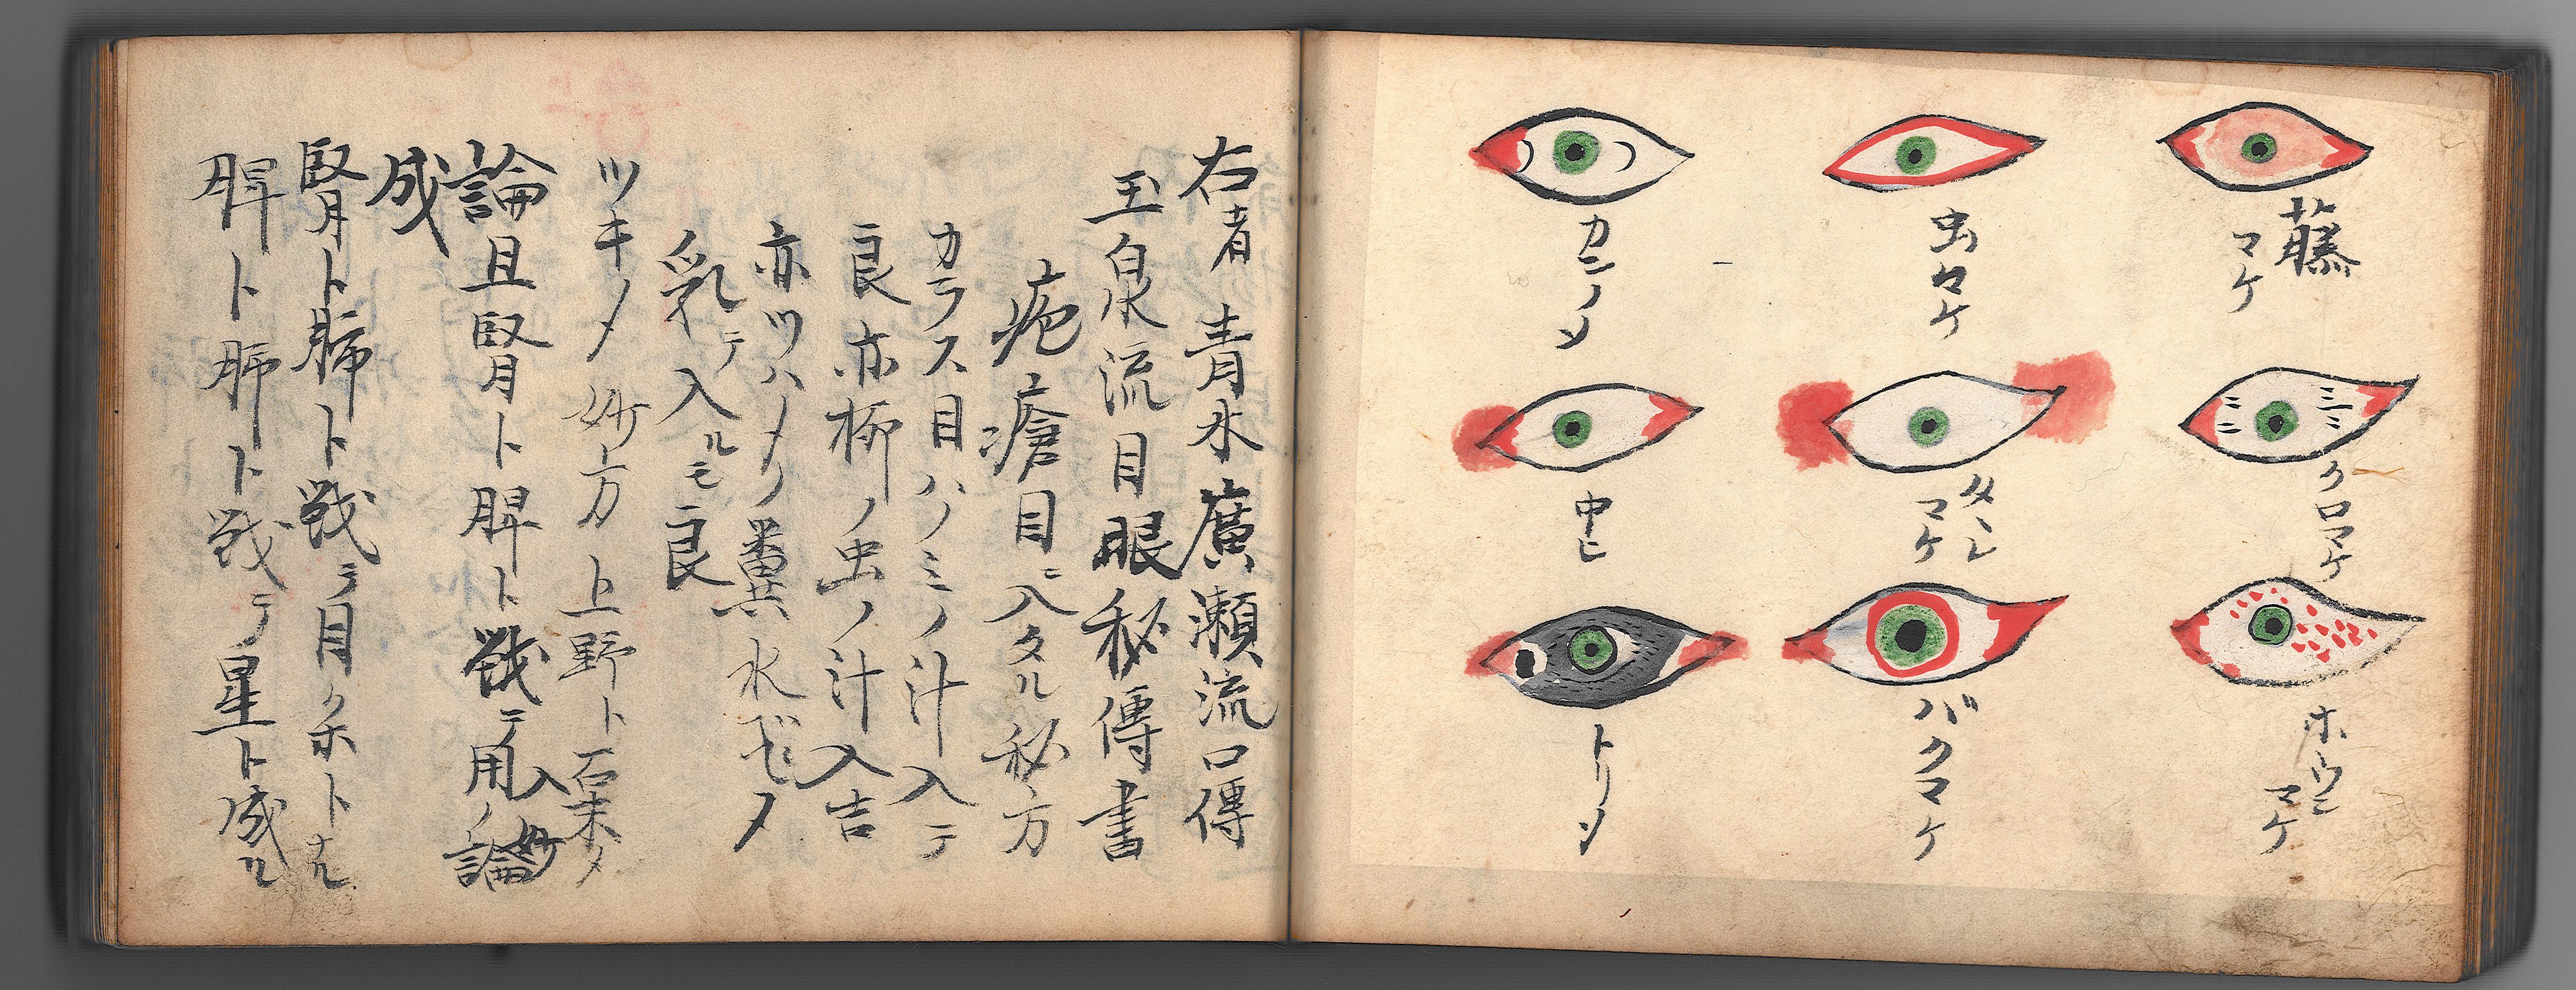 藤
マケ
クロマケ
ホウシ
マケ
虫マケ
タン
マケ
バクマケ
カンノメ
中ヒ
トリメ
右者青木廣瀬流口傳
玉泉流目眼秘傳書
疱瘡目ニ入タル秘方
カラス目ハノミノ汁入テ
良亦柳ノ虫ノ汁入吉
亦ツハメノ糞水ゼメ
乳テ入ルモ良
ツキノメ妙方上野ト石末メ
入妙
論且腎ト脾ト戦テ用ノ論
成
腎ト肺ト戦テ目クホトナル
脾ト肺ト戦テ星ト成ル